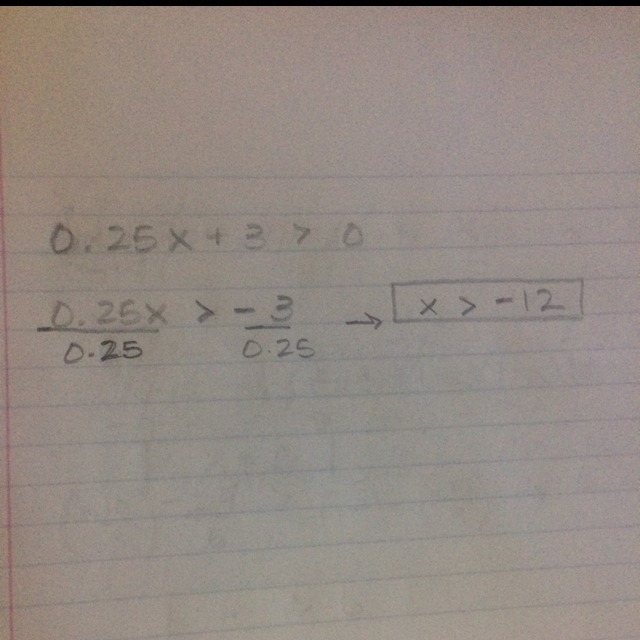 0.25x + 3 > 0
0.25x > - 3 → x > -12
0.25 0.25